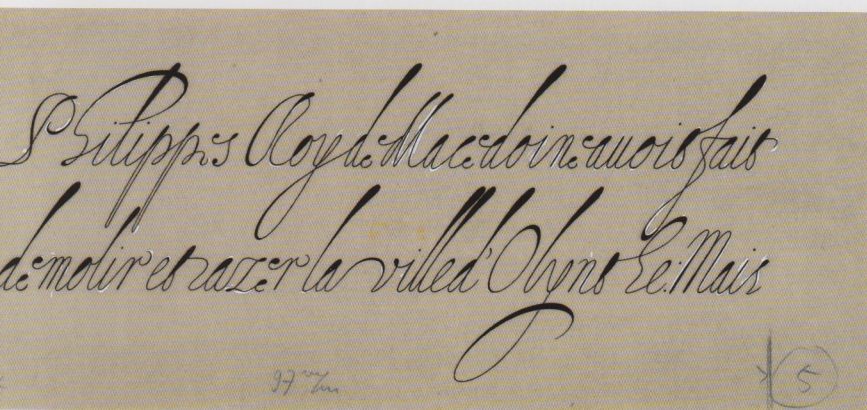 Philippes Roy de Macedoine auoit fait
demolir et razer la ville d'Olynthe: Mais
97 m/m
5